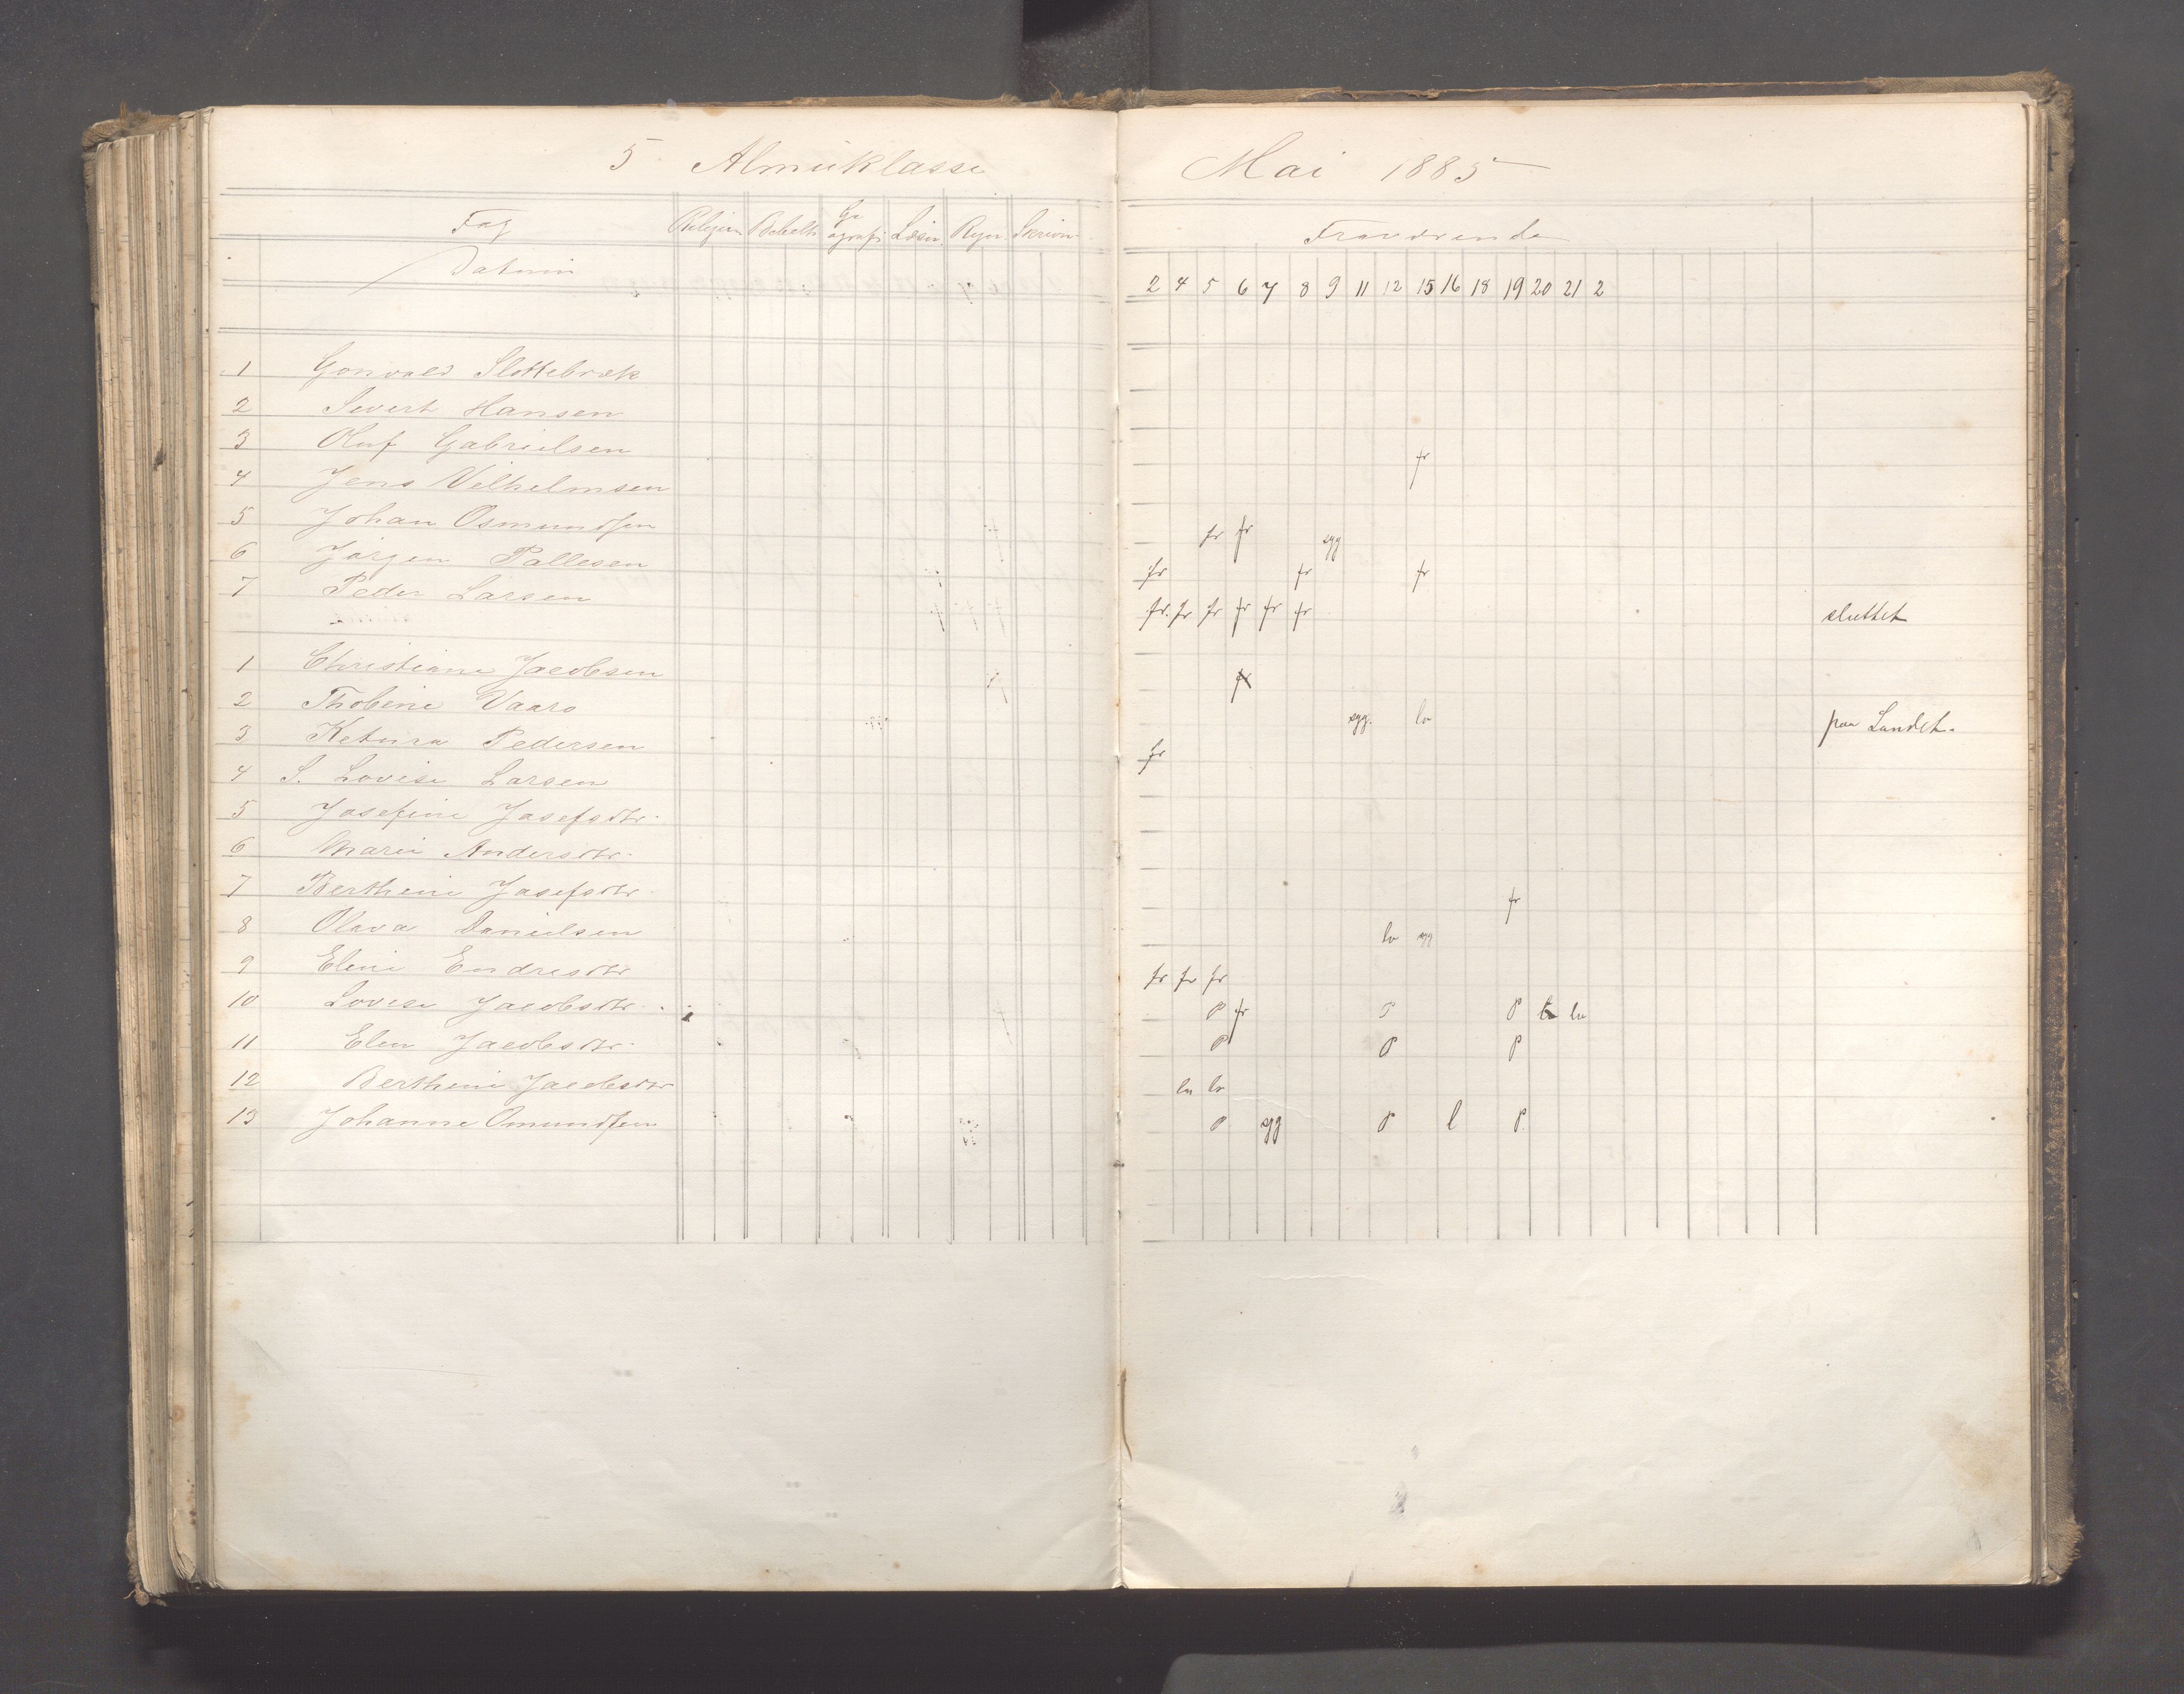 5 Almueklasse
Mai 1885
Fag Religion Bibelh Geografi Læsn. Regn. Skrivn.
Fraværende
Datum
2 4 5 6 7 8 9 11 12 15 16 18 19 20 21 2
1 Gonvald Slettebræk
2 Sivert Hansen
3 Oluf Gabrielsen fr
4 Jens Vilhelmsen
5 Johan Osmundsen fr fr syg
6 Jørgen Pallesen fr fr fr
7 Peder Larsen fr. fr fr fr fr fr sluttet
1 Christiane Jacobsen fr
2 Thobine Vaaro syg. lo paa Landet.
3 Ketura Pedersen fr
4 S. Lovise Larsen
5 Josefine Josefsdtr.
6 Marie Andersdtr.
7 Berthine Josefsdtr fr
8 Olava Danielsen lo syg
9 Eline Endresdtr fr fr fr
10 Lovise Jacobsdtr. P fr P P lo lo
11 Elen Jacobsdtr. P P P
12 Berthine Jacobsdtr lo lo
13 Johanne Omundsen P syg P l P.